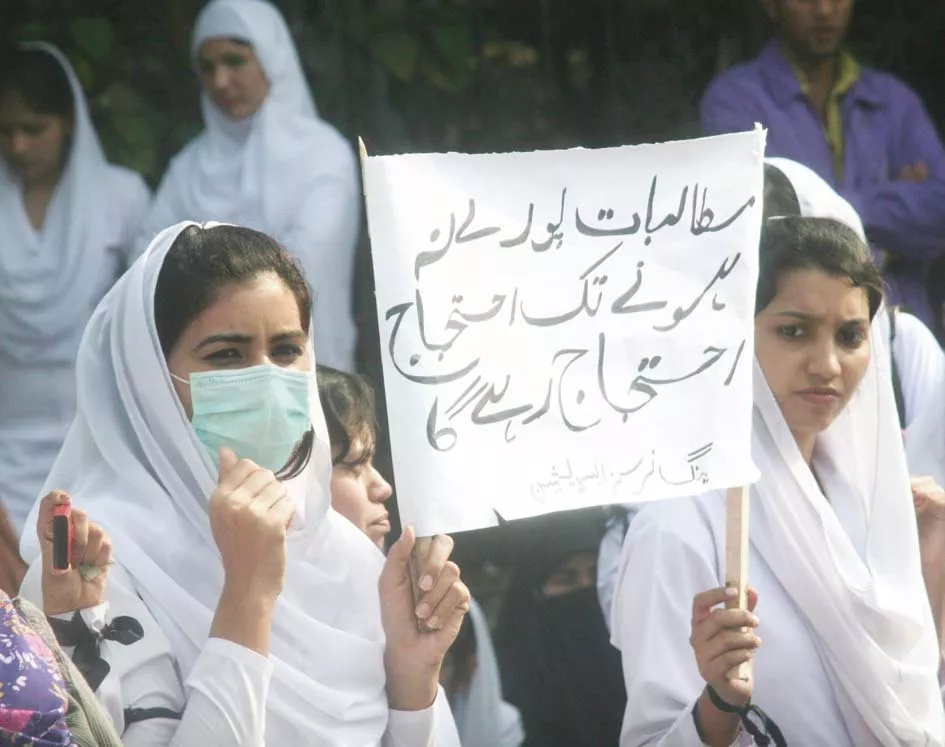 مطالبات پورے نہ
ہونے تک احتجاج
احتجاج رہے گا
ینگ نرسز ایسوسی ایشن